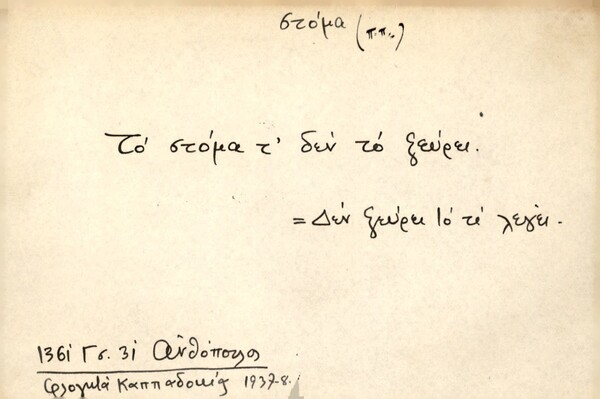 στόμα (π.π.)
Τό στόμα τ' δέν τό ξεύρει.
= Δέν ξεύρει τί λέγει.
1361 Γσ. 31 Ανθόπουλος
Φλογητά Καππαδοκίας 1937-8.